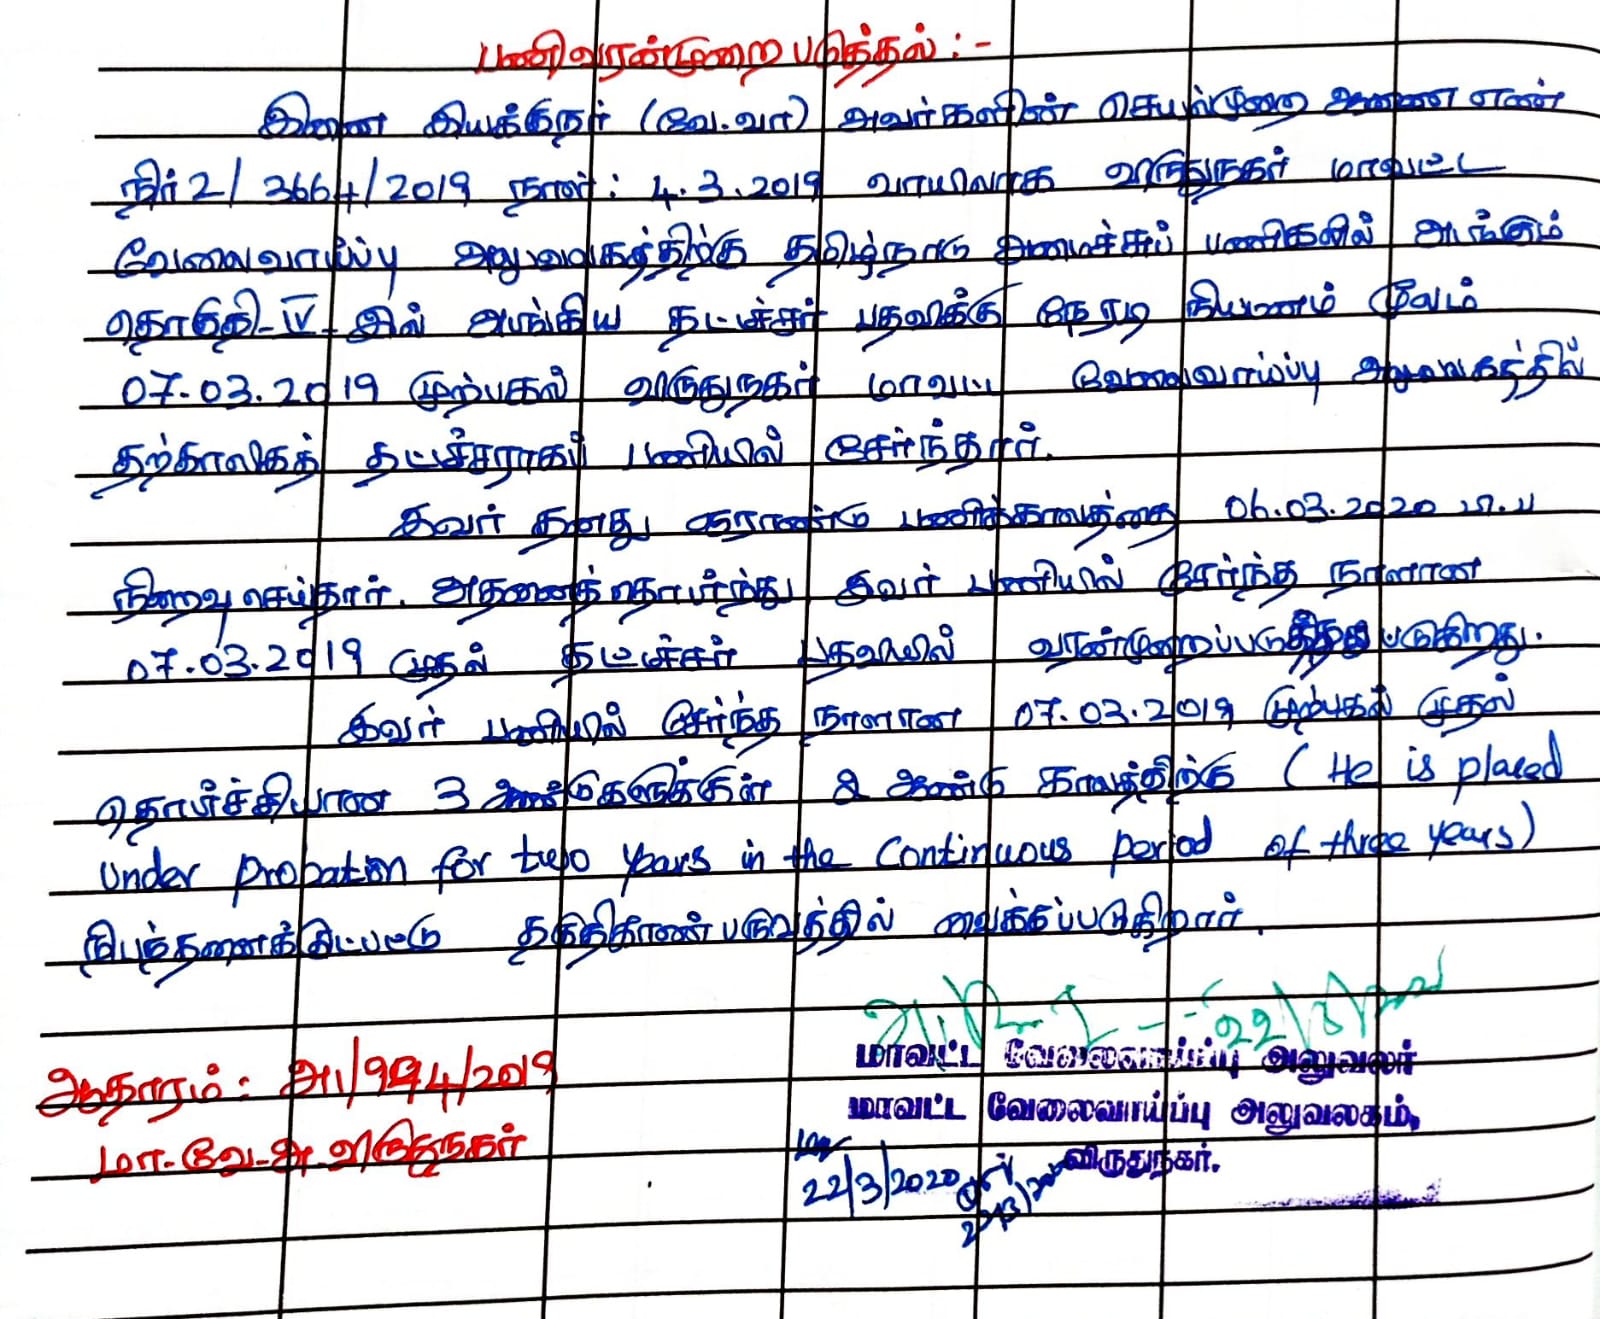 பணிவரன்முறை படுத்தல் :-
இணை இயக்குநர் (வே.வா) அவர்களின் செயல்முறை ஆணை எண்
நிர்2/3664/2019 நாள்: 4.3.2019 வாயிலாக விருதுநகர் மாவட்ட
வேலைவாய்ப்பு அலுவலகத்திற்கு தமிழ்நாடு அமைச்சுப் பணிகளில் அடங்கும்
தொகுதி-IV-இல் அடங்கிய தட்டச்சர் பதவிக்கு நேரடி நியமனம் மூலம்
07.03.2019 முற்பகல் விருதுநகர் மாவட்ட வேலைவாய்ப்பு அலுவலகத்தில்
தற்காலிகத் தட்டச்சராகப் பணியில் சேர்ந்தார்.
இவர் தனது ஓராண்டு பணிக்காலத்தை 06.03.2020 பி.ப
நிறைவு செய்தார். அதனைத்தொடர்ந்து இவர் பணியில் சேர்ந்த நாளான
07.03.2019 முதல் தட்டச்சர் பதவியில் வரன்முறைப்படுத்தப்படுகிறது.
இவர் பணியில் சேர்ந்த நாளான 07.03.2019 முற்பகல் முதல்
தொடர்ச்சியான 3 ஆண்டுகளுக்குள் 2 ஆண்டு காலத்திற்கு (He is placed
under probation for two years in the continuous period of three years)
நிபந்தனைக்குட்பட்டு தகுதிகாண் பருவத்தில் வைக்கப்படுகிறார்.
22/3/2020
மாவட்ட வேலைவாய்ப்பு அலுவலர்
மாவட்ட வேலைவாய்ப்பு அலுவலகம்,
விருதுநகர்.
ஆதாரம் : அ1/994/2019
மா.வே.அ. விருதுநகர்
22/3/2020